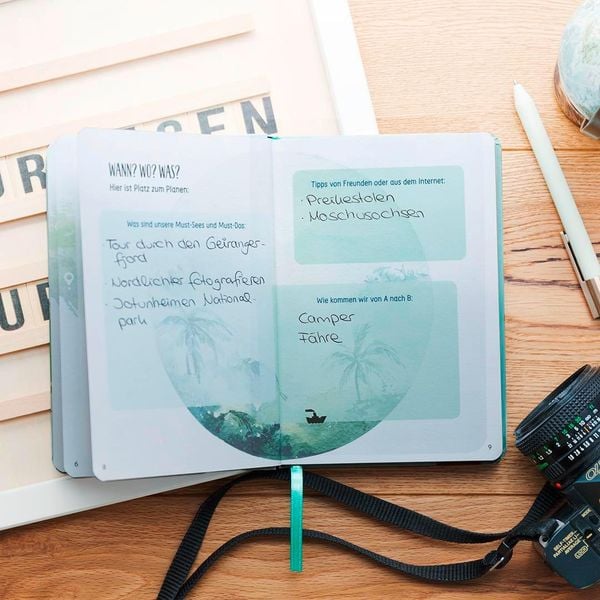 WANN? WO? WAS?
Hier ist Platz zum Planen:
Was sind unsere Must-Sees und Must-Dos:
· Tour durch den Geiranger-
fjord
· Nordlichter fotografieren
· Jotunheimen National-
park
8
6
Tipps von Freunden oder aus dem Internet:
· Preikestolen
· Moschusochsen
Wie kommen wir von A nach B:
Camper
Fähre
9